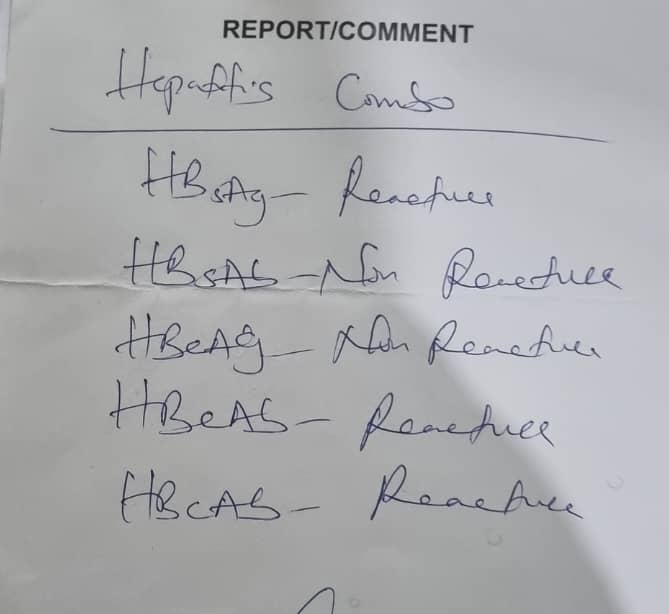 REPORT/COMMENT
Hepatitis Combo
HBsAg - Reactive
HBsAb - Non Reactive
HBeAg - Non Reactive
HBeAb - Reactive
HBcAb - Reactive